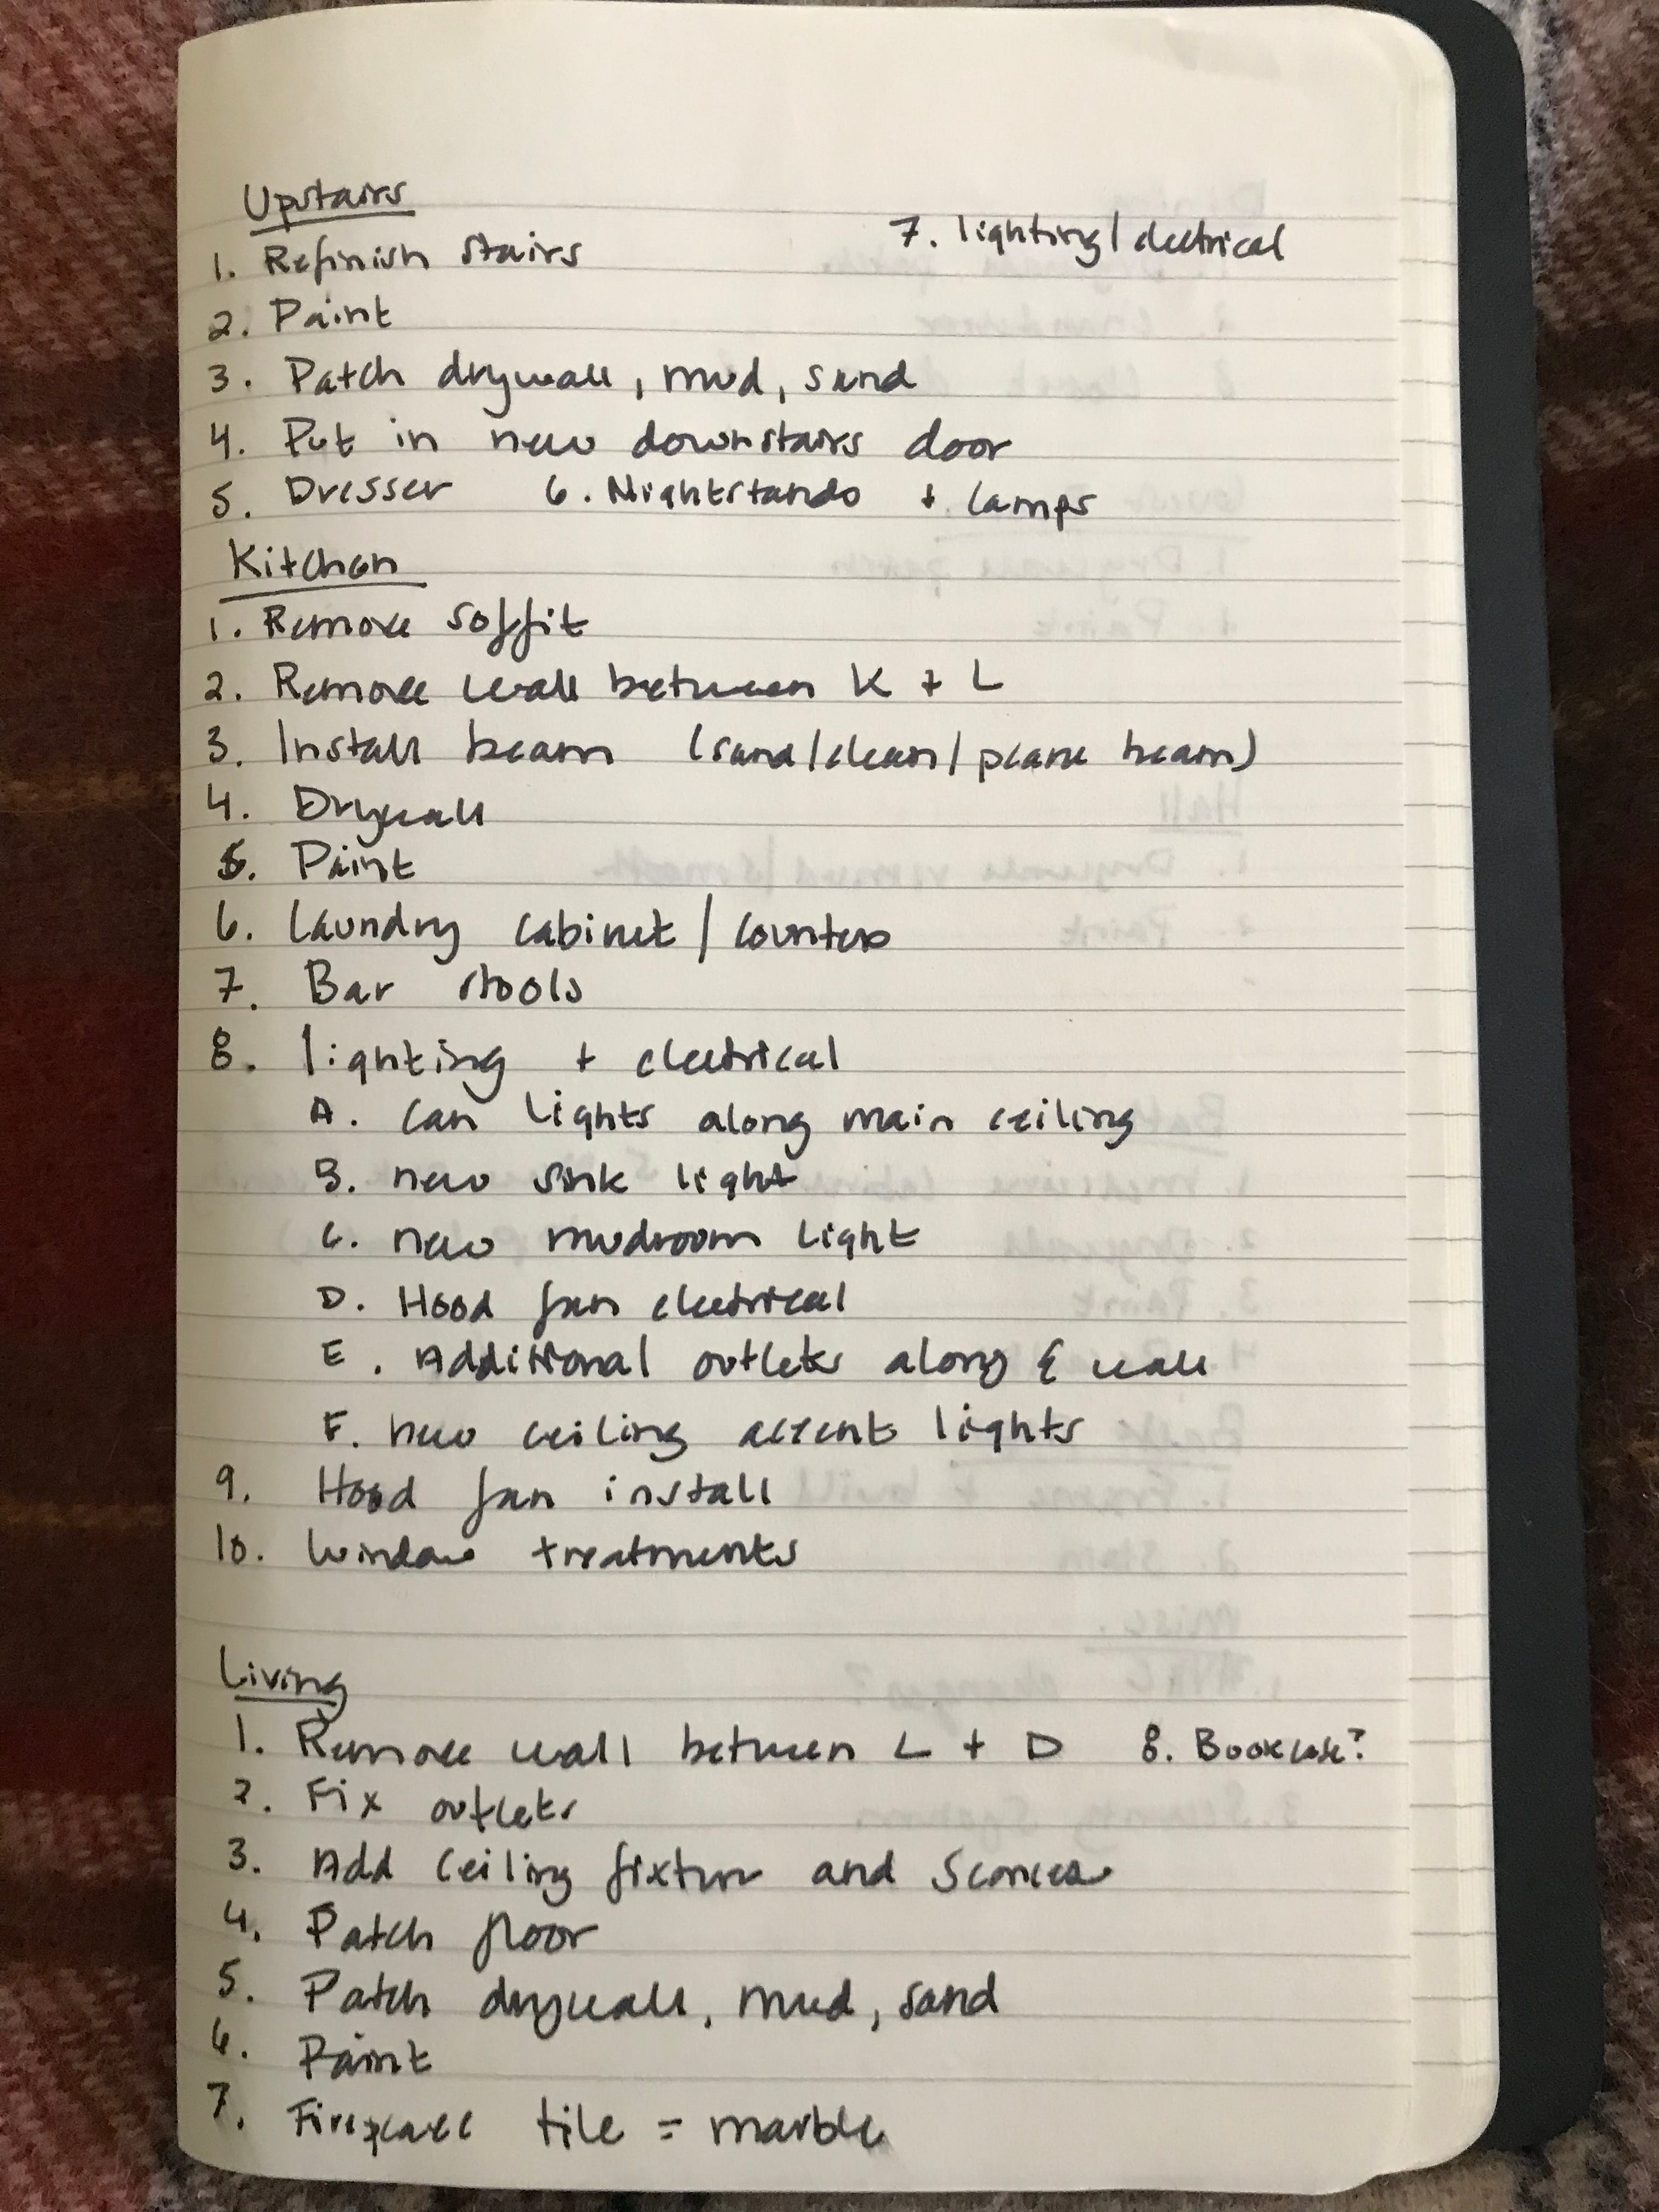 Upstairs
1. Refinish stairs
7. lighting/electrical
2. Paint
3. Patch drywall, mud, sand
4. Put in new downstairs door
5. Dresser 6. Nightstands + lamps
Kitchen
1. Remove soffit
2. Remove wall between K + L
3. Install beam (sand/clean/plane beam)
4. Drywall
5. Paint
6. Laundry cabinet/counters
7. Bar stools
8. lighting + electrical
A. can lights along main ceiling
B. new sink light
C. new mudroom light
D. Hood fan electrical
E. Additional outlets along E wall
F. new ceiling accent lights
9. Hood fan install
10. Window treatments
Living
1. Remove wall between L + D 8. Bookcase?
2. Fix outlets
3. Add ceiling fixture and sconces
4. Patch floor
5. Patch drywall, mud, sand
6. Paint
7. Fireplace tile = marble